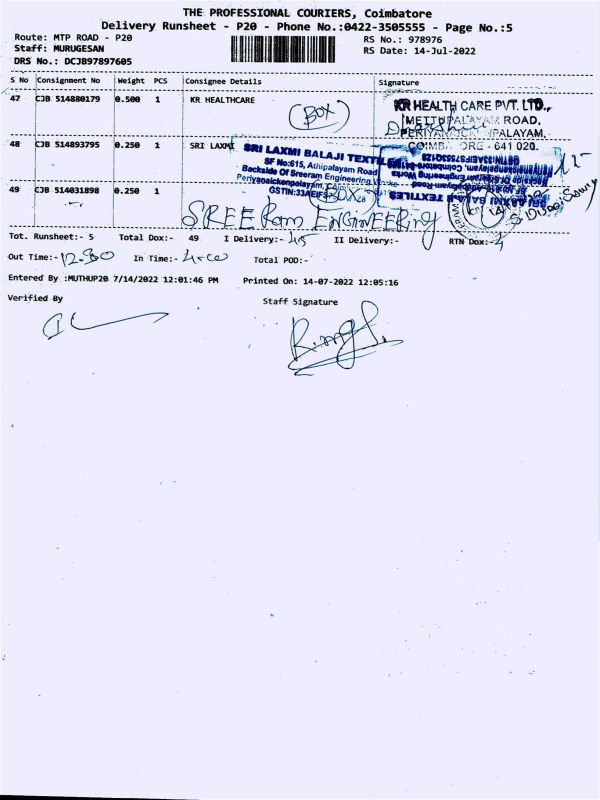 THE PROFESSIONAL COURIERS, Coimbatore
Delivery Runsheet - P20 - Phone No.:0422-3505555 - Page No.:5
Route: MTP ROAD - P20 RS No.: 978976
Staff: MURUGESAN RS Date: 14-Jul-2022
DRS No.: DCJB97897605
S No Consignment No Weight PCS Consignee Details Signature
47 CJB 514880179 0.500 1 KR HEALTHCARE KR HEALTH CARE PVT. LTD.,
BOX METTUPALAYAM ROAD,
PERIYANAICKENPALAYAM,
COIMBATORE - 641 020.
48 CJB 514893795 0.250 1 SRI LAXMI SRI LAXMI BALAJI TEXTILES
SF No:615, Athipalayam Road
Backside Of Sreeram Engineering Works
Periyanaickenpalayam,
49 CJB 514031898 0.250 1 BOX
SREE Ram ENGINEERING
Tot. Runsheet:- 5 Total Dox:- 49 I Delivery:- 45 II Delivery:- RTN Dox:- 4
Out Time:- 12.30 In Time:- 4.00 Total POD:-
Entered By :MUTHUP20 7/14/2022 12:01:46 PM Printed On: 14-07-2022 12:05:16
Verified By Staff Signature